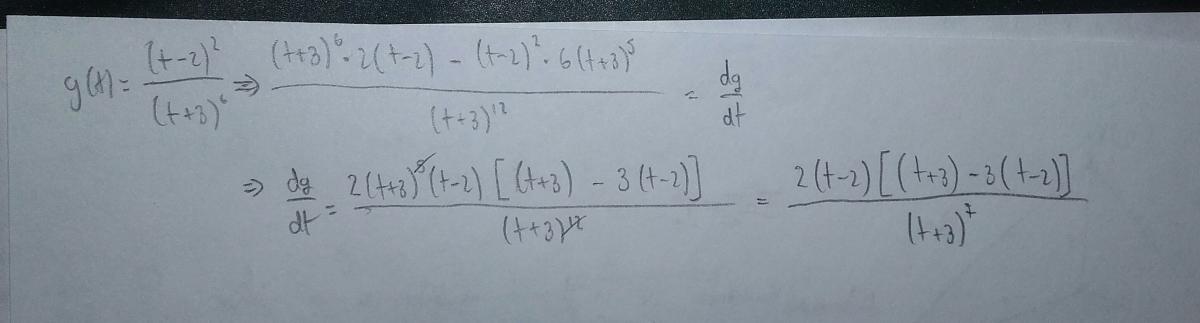 g(t) = (t-2)² / (t+3)⁶ ⇒ [(t+3)⁶ · 2(t-2) - (t-2)² · 6(t+3)⁵] / (t+3)¹² = dg/dt
⇒ dg/dt = 2(t+3)⁵(t-2)[(t+3) - 3(t-2)] / (t+3)¹² = 2(t-2)[(t+3) - 3(t-2)] / (t+3)⁷